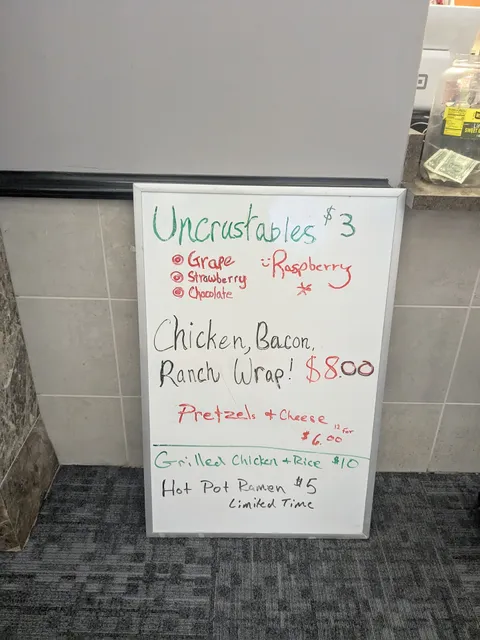 Uncrustables $3
Grape
Strawberry
Chocolate
Raspberry
Chicken, Bacon,
Ranch Wrap! $8.00
Pretzels + Cheese
12 for
$6.00
Grilled Chicken + Rice $10
Hot Pot Ramen $5
Limited Time